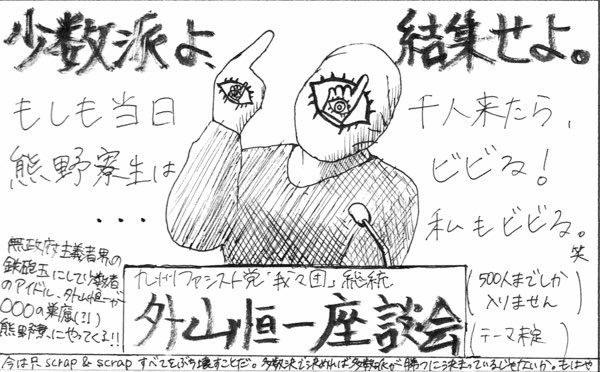 少数派よ、結集せよ。
もしも当日千人来たら、
熊野寮生はビビる！
・・・私もビビる。
笑
無政府主義者界の
鉄砲玉にして少数者
のアイドル、外山恒一が
〇〇〇の巣屈(?!)
熊野寮にやってくる!!
九州ファシスト党「我々団」総統
外山恒一座談会
(500人までしか
入りません)
(テーマ未定)
今は scrap & scrap すべてをぶち壊すことだ。多数決で決めれば多数派が勝つに決まっているじゃないか。もはや